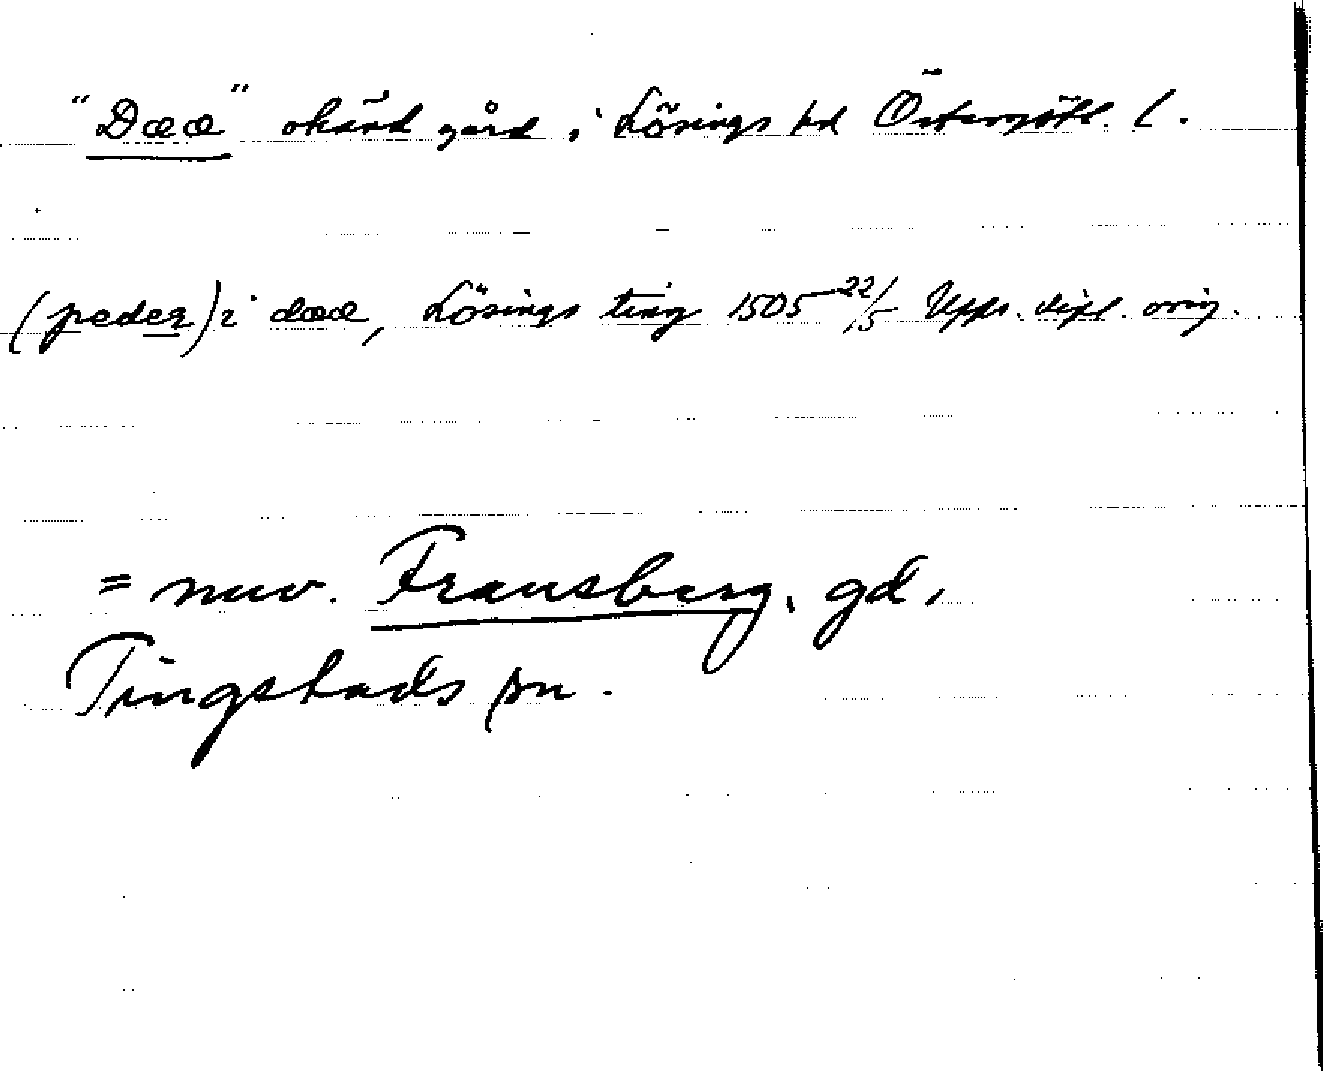 "Dææ" okänd gård i Lösings hd Östergötl. l.
(peder) i dææ, Lösings ting 1505 22/5 Upps. dipl. orig.
= nuv. Fransberg, gd,
Tingstads sn.